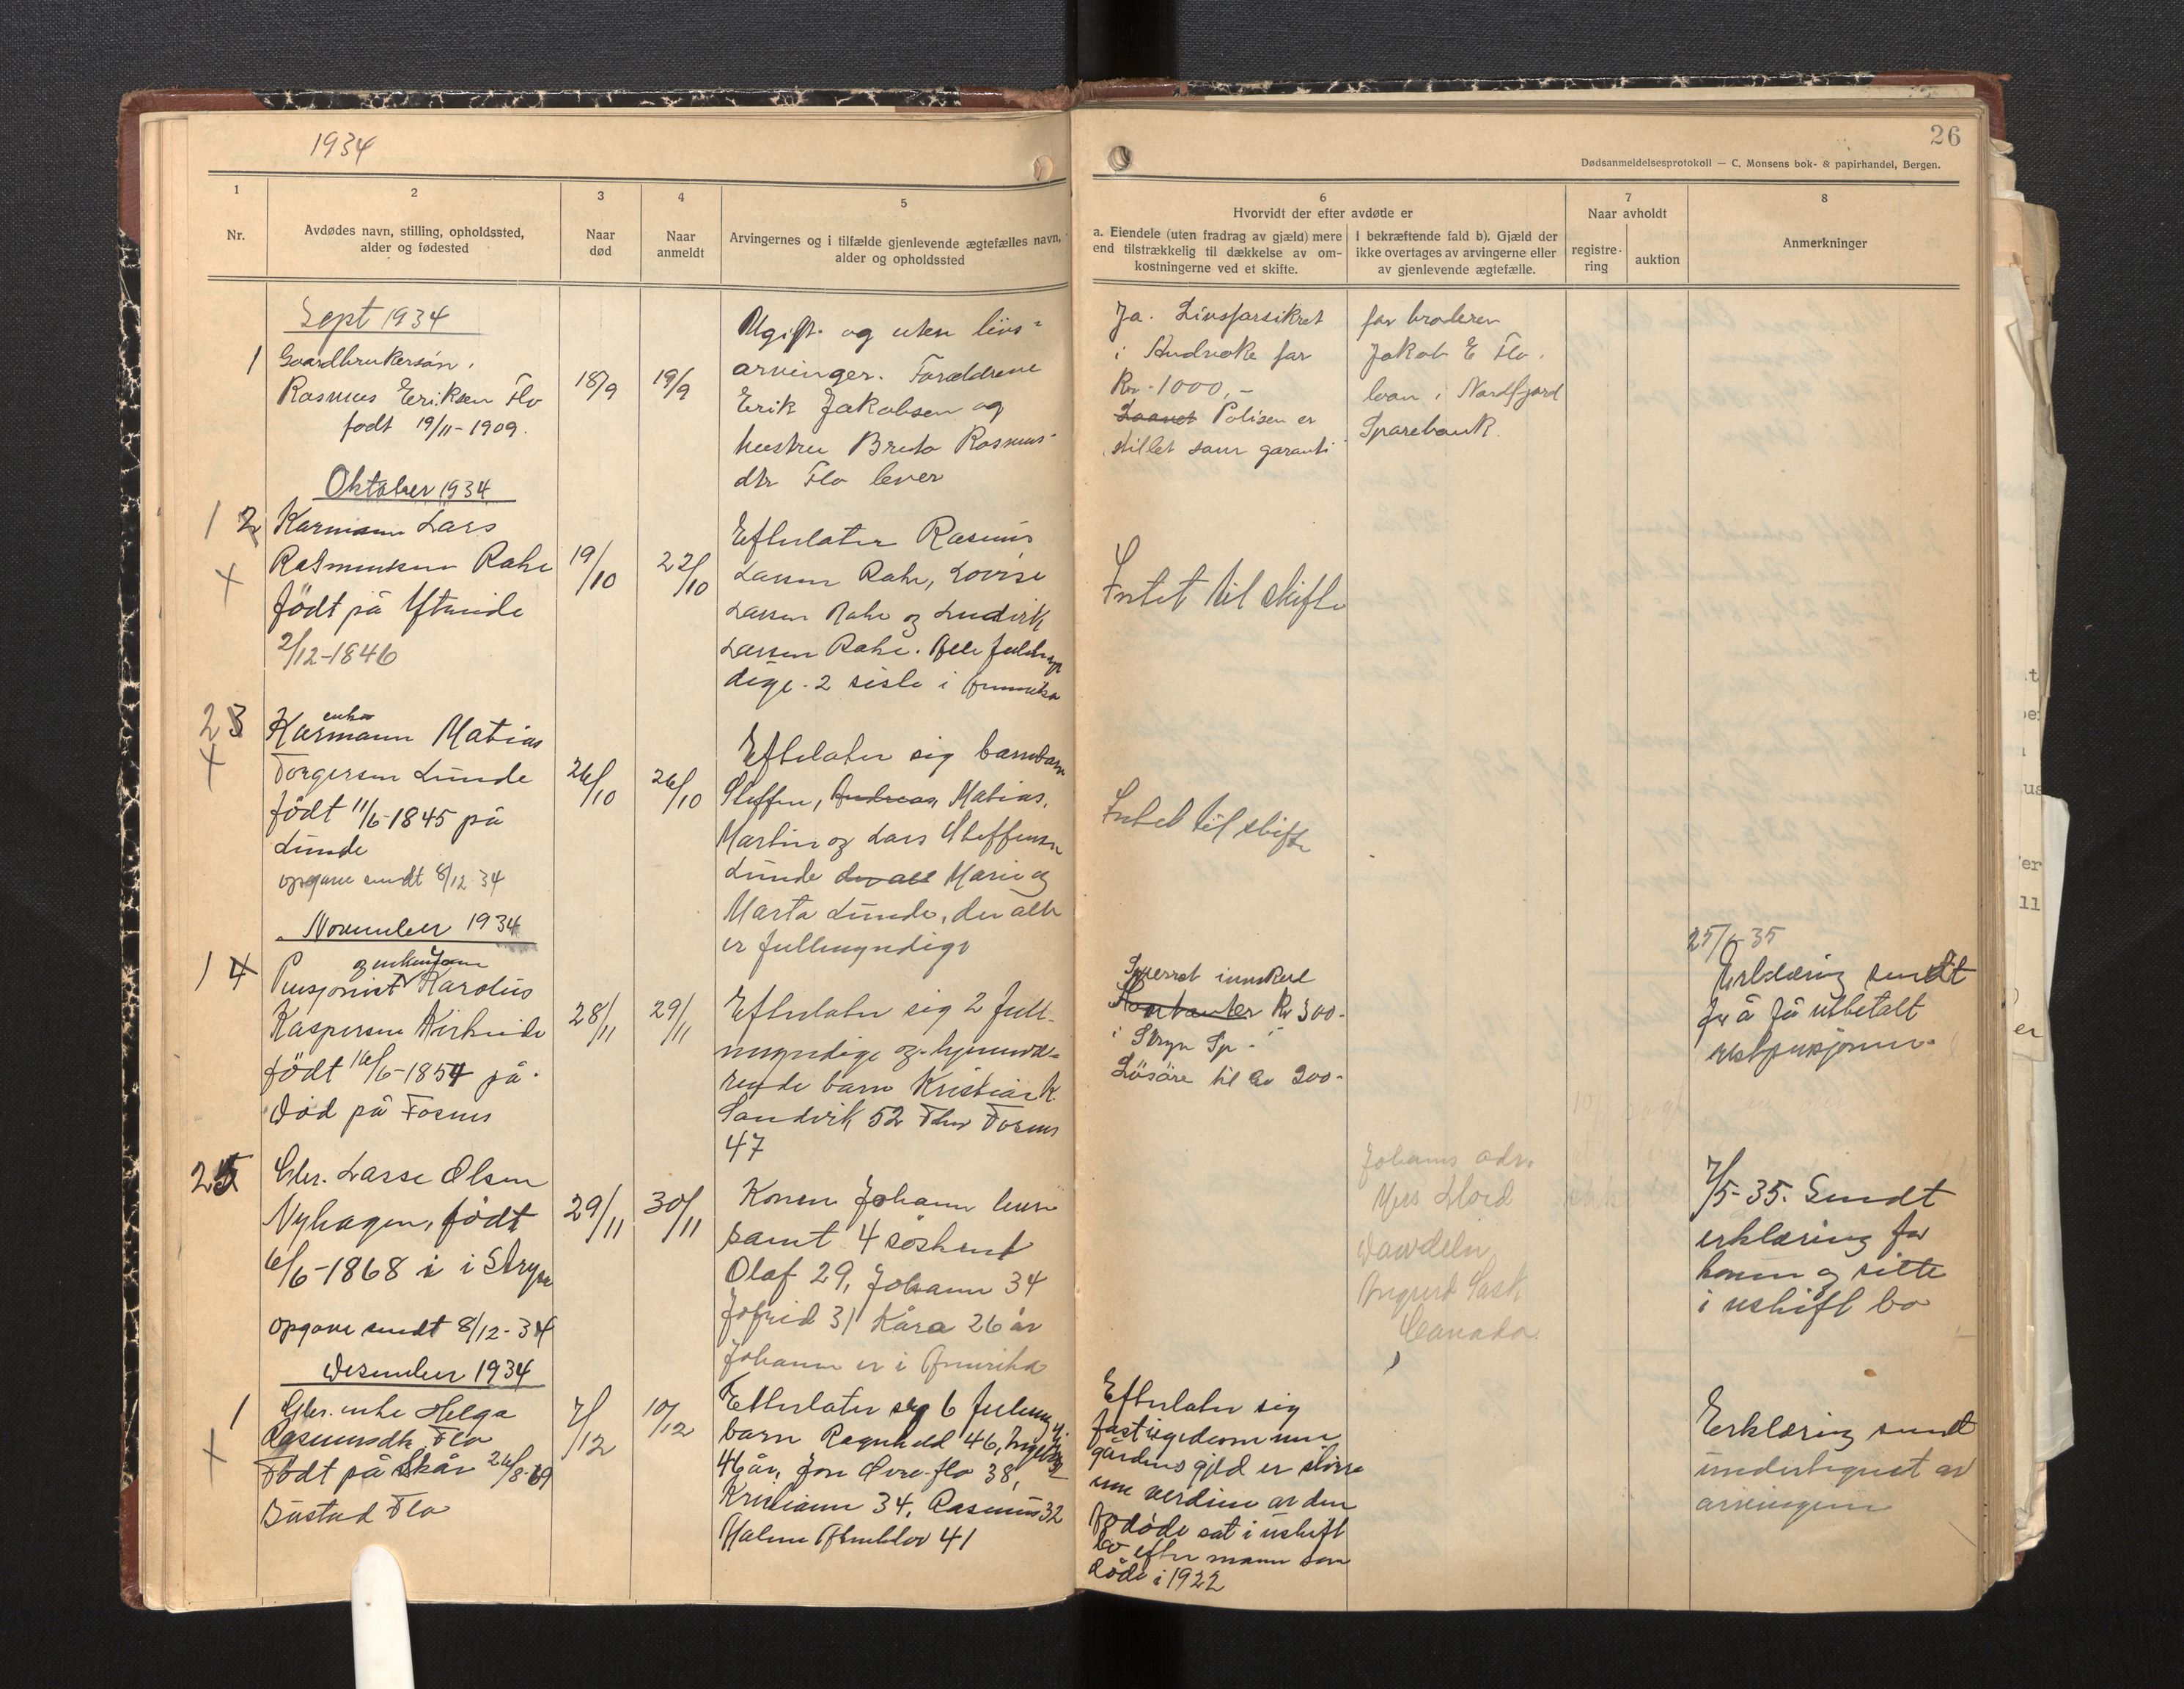 1934
26
Dødsanmeldelsesprotokoll — C. Monsens bok- & papirhandel, Bergen.
1
Nr.
2
Avdødes navn, stilling, opholdssted,
alder og fødested
3
Naar
død
4
Naar
anmeldt
5
Arvingernes og i tilfælde gjenlevende ægtefælles navn,
alder og opholdssted
6
Hvorvidt der efter avdøde er
a. Eiendele (uten fradrag av gjæld) mere
end tilstrækkelig til dækkelse av om-
kostningerne ved et skifte.
I bekræftende fald b). Gjæld der
ikke overtages av arvingerne eller
av gjenlevende ægtefælle.
7
Naar avholdt
registre-
ring
auktion
8
Anmerkninger
Sept 1934
1
Gaardbrukersøn.
Rasmus Eriksen Flo
født 19/11-1909.
18/9
19/9
Ugift og uten livs-
arvinger. Forældrene
Erik Jakobsen og
hustru Brita Rasmus-
dtr Flo lever
Ja. Livsforsikret
i Andvake for
Kr. 1000,-
Laanet Polisen er
stillet som garanti
for broderen
Jakob E Flo.
loan i Nordfjord
Sparebank.
Oktober 1934
1 2
Karmann Lars
Rasmussen Rake
født på Ytreeide
2/12-1846
19/10
22/10
Efterlater Rasmus
Larsen Rake, Lovise
Larsen Rake og Ludvik
Larsen Rake. Alle fuldmyn
dige. 2 siste i Amerika
Intet til skifte
2 3
enke
Karmann Matias
Torgersen Lunde
født 11/6-1845 på
Lunde
opgave sendt 8/12-34
26/10
26/10
Efterlater sig barnebarn
Steffen, Andreas, Matias,
Martin og Lars Steffensen
Lunde der all Marie og
Marta Lunde, der alle
er fullmyndige
Intet til skifte
November 1934
1 4
og enkemann
Pensjonist Karolus
Kaspersen Kirkeide
født 16/6-1854 på
Død på Fosnes
28/11
29/11
Efterlater sig 2 full-
myndige og hjemmevæ-
rende barn Kristian K.
Sandvik 52 Fosnes
47
Sperret innskud
Kontanter Kr 300-
i Stryn Sp.
Løsøre til kr 200-
25/6-35
Erklæring sendt
for å få utbetalt
restpensjonen.
2 5
Gbr. Lasse Olsen
Nyhagen, født
6/6-1868 i i Stryn
opgave sendt 8/12-34
29/11
30/11
Konen Johanne lever
samt 4 søskend
Olaf 29, Johanne 34
Jofrid 31 Kåra 26 år
Johanne er i Amerika
Johanns adr.
Mrs Lloid
Canada.
7/5-35. Sendt
erklæring for
konen og sitte
i uskift bo
Desember 1934
1
Gbr. enke Helga
Rasmusdtr Flo
Født på Skåre 26/8-69
Bustad Flo
7/12
10/12
Efterlater seg 6 fullmyndi
barn Ragnhild 46,
46 år, Jon Øvre-flo 38,
Kristianne 34, Rasmus 32
41
Efterlater sig
fast eigedom men
gårdens gjeld er större
enn verdien av den
Avdøde sat i uskift
bo efter mann som
døde i 1922
Erklæring sendt
undertegnet av
arvingene